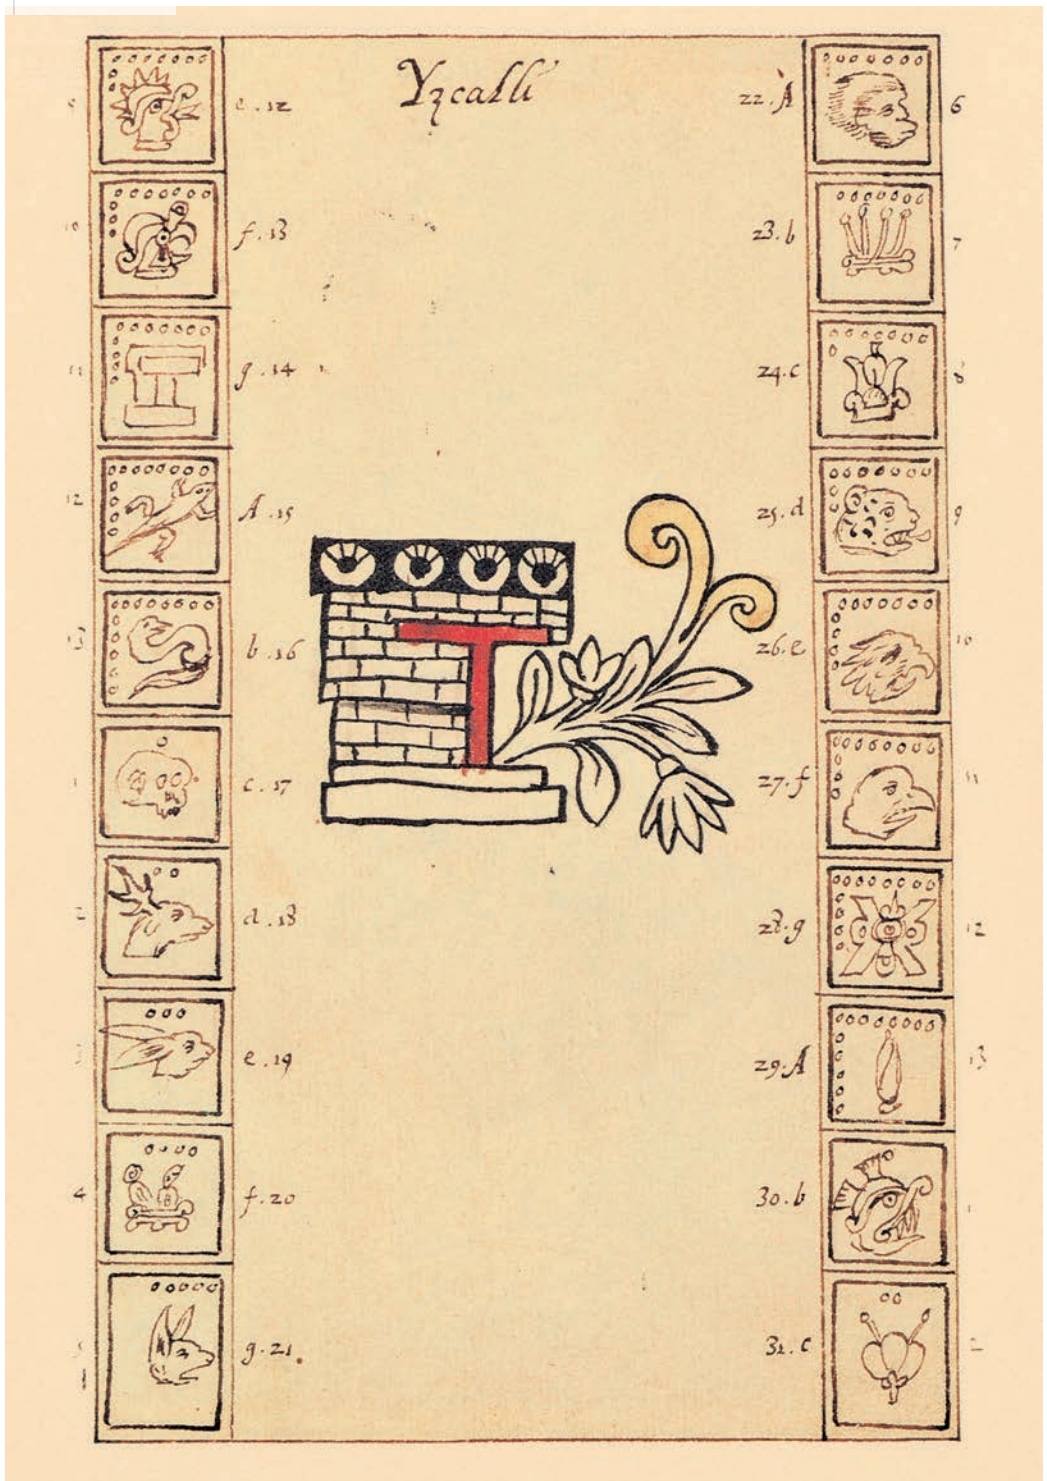 Yzcalli
e. 12
10
f. 13
11
g. 14
12
A. 15
13
b. 16
1
c. 17
2
d. 18
3
e. 19
4
f. 20
g. 21.
22. A
6
23. b
7
24. c
8
25. d
9
26. e
10
27. f
11
28. g
12
29. A
13
30. b
1
31. c
2